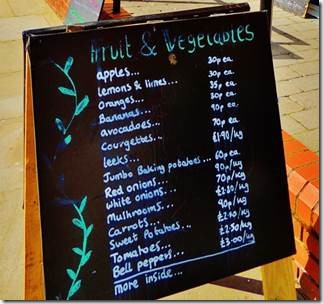 Fruit & Vegetables
apples... 30p ea.
lemons & limes... 30p ea.
Oranges... 35p ea.
Bananas... ea.
avocadoes... ea.
Courgettes... 70p ea.
leeks... £1.90/kg
Jumbo Baking potatoes... 60p ea.
Red onions... 90p/kg
White onions... 70p/kg
Mushrooms...
Carrots... 90p/kg
Sweet Potatoes...
Tomatoes... £2.50/kg
Bell peppers... £3.00/kg
more inside...